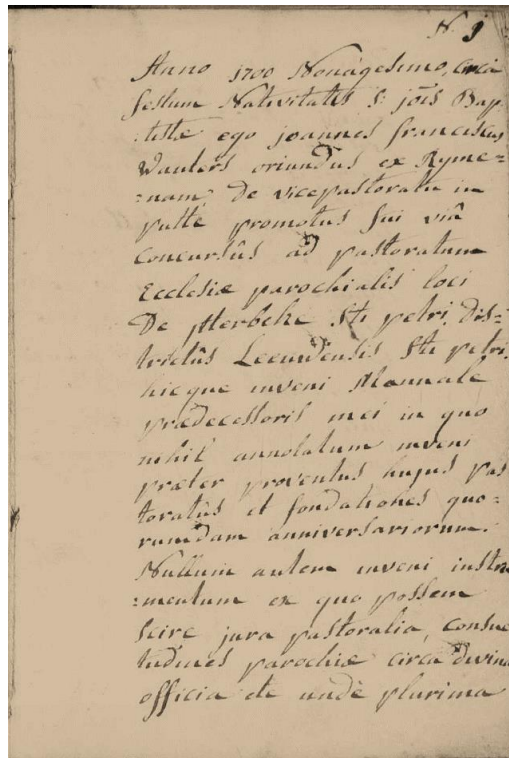 N. 1
Anno 1700 Nonagesimo, circa
festum Nativitatis S: jōis Bap
:tistæ ego joannes franciscus
Wauters oriundus ex Ryme=
=nam de vicepastoratu in
putte promotus fui viâ
concursûs ad pastoratum
Ecclesiæ parochialis loci
De Sti petri, Dis=
trictûs Leeuwensis Sti petri,
hicque inveni Manuale
prædecessoris mei in quo
nihil annotatum inveni
præter proventus hujus pas
toratûs et fondationes quo=
rumdam anniversariorum.
Nullum autem inveni instru
=mentum ex quo possem
scire jura pastoralia, consue
tudines parochiæ circa divina
officia etc undè plurima